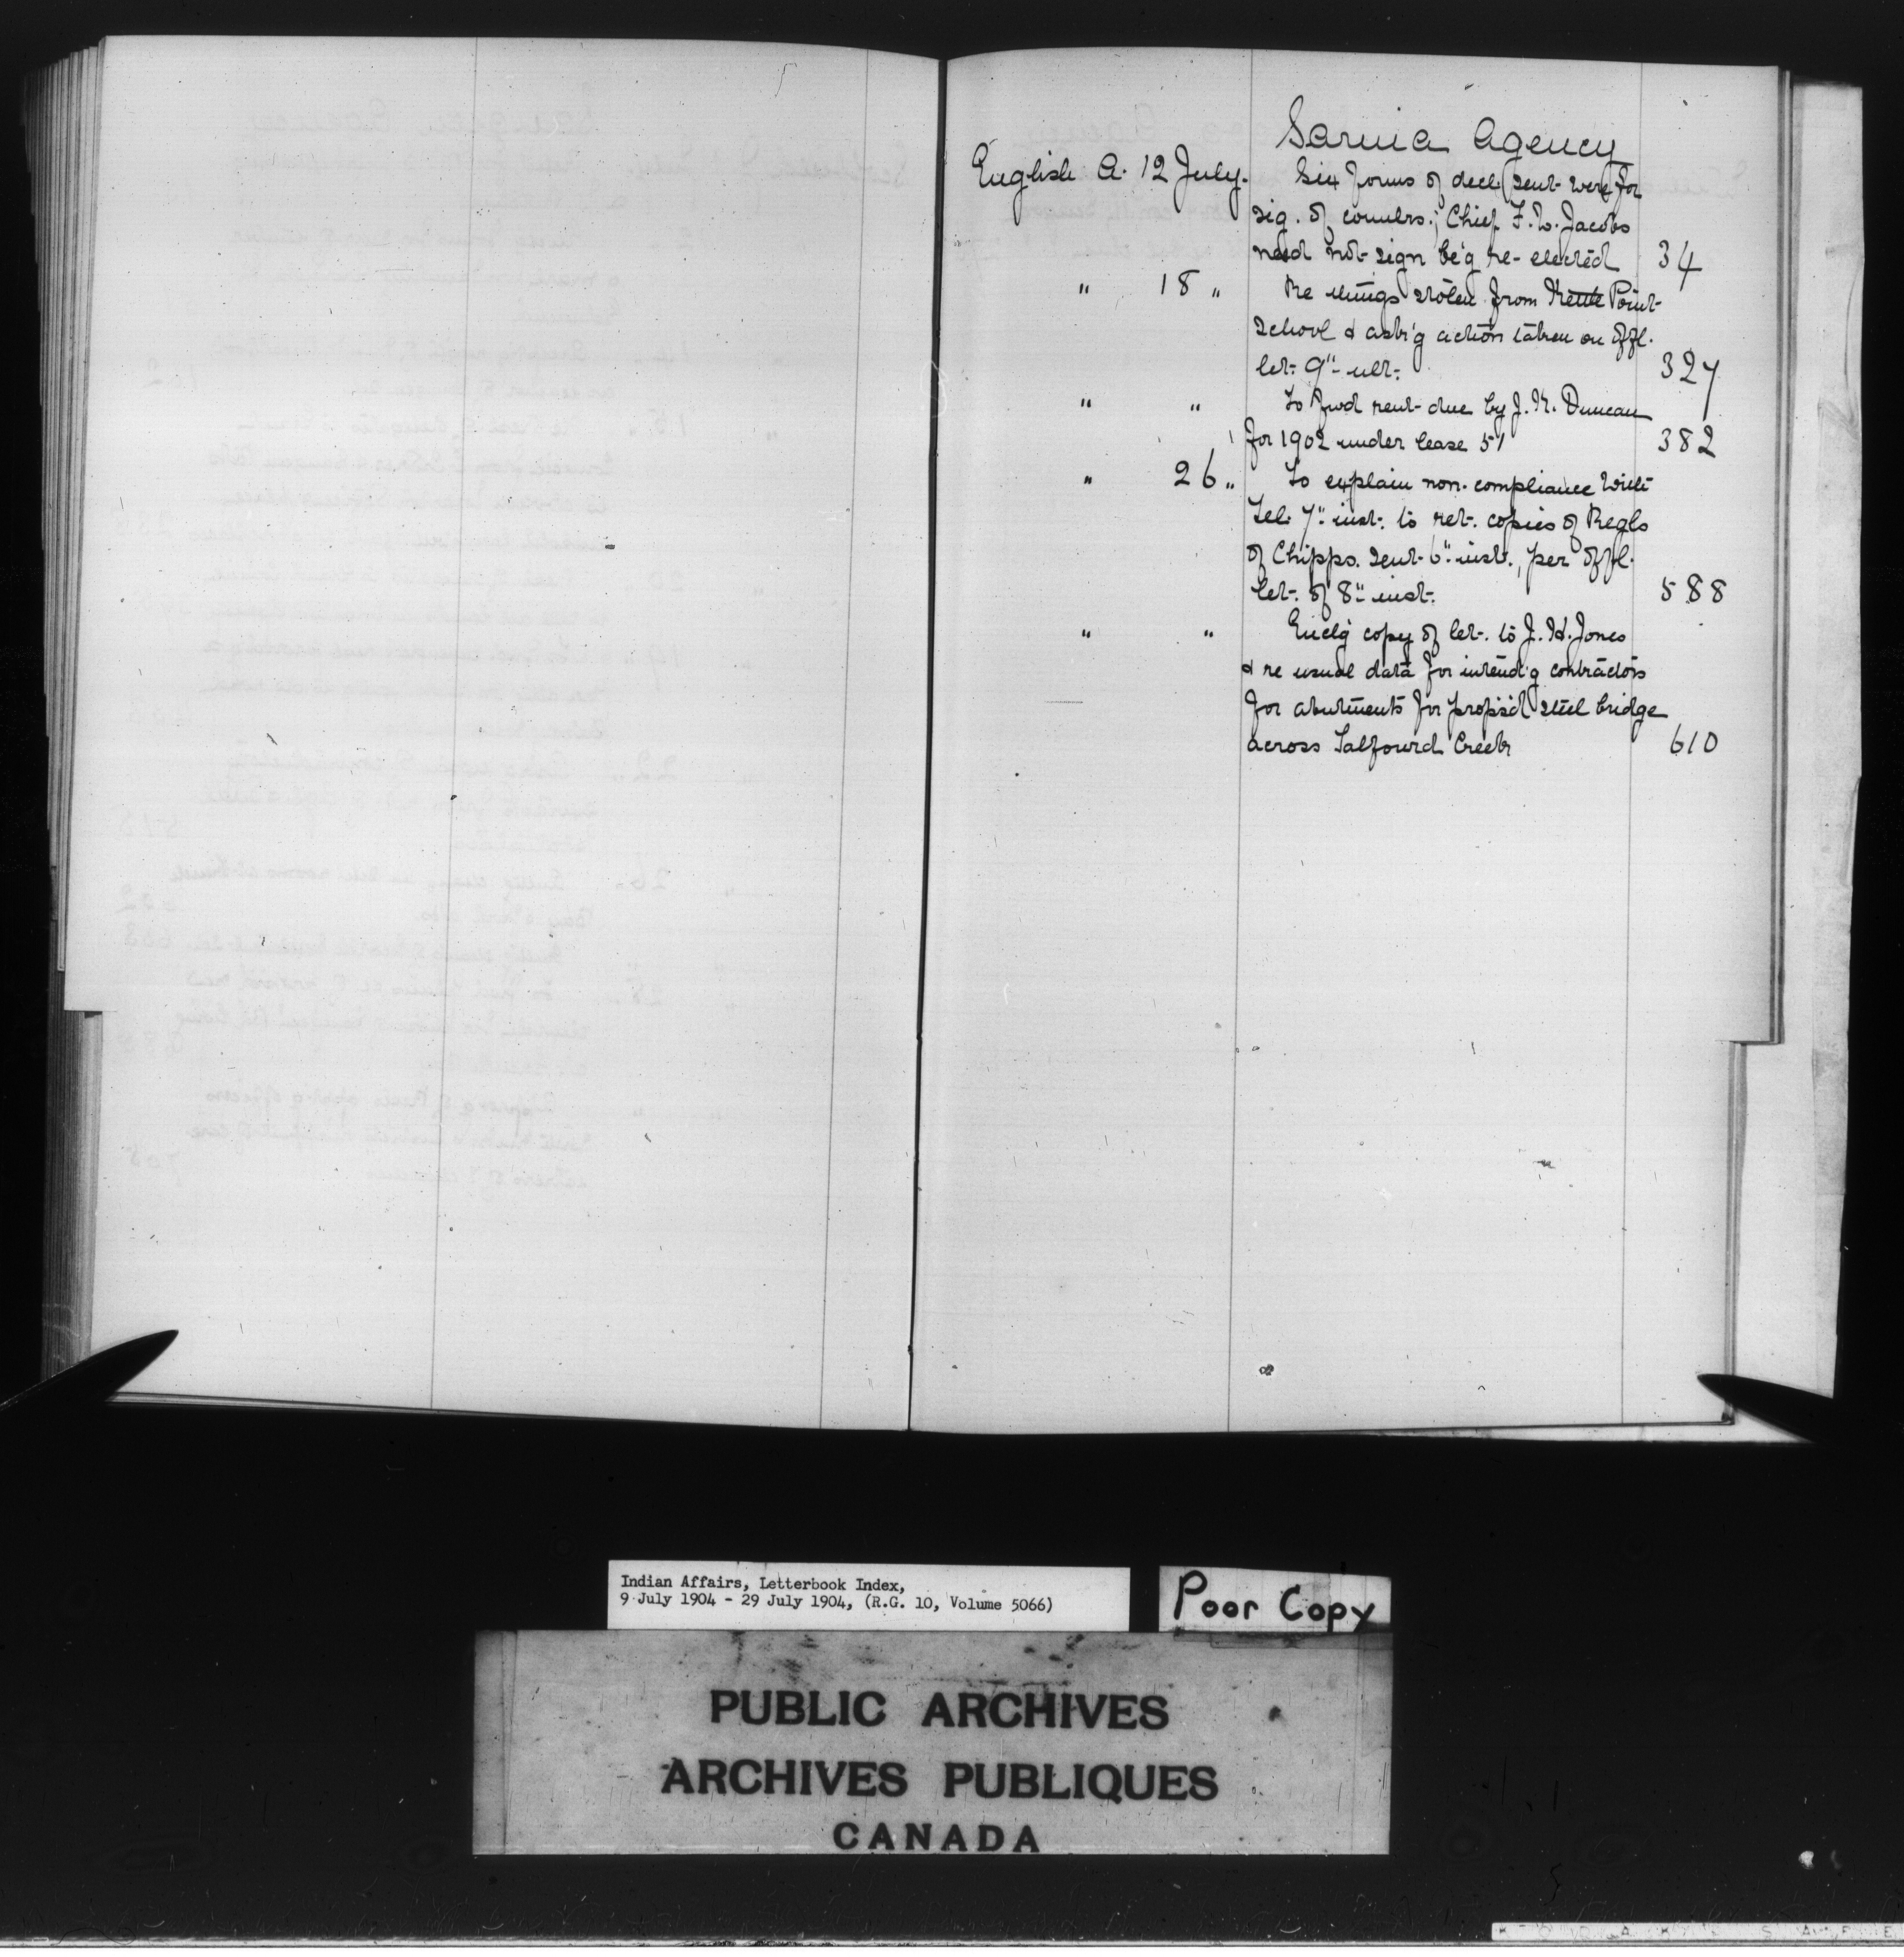 Sarnia Agency
English A. 12 July. Six forms of decl. sent were for
sig. of counlrs.; Chief F. W. Jacobs
need not sign be'g re-elected 34
" 18 " Re things stolen from Kettle Point
School & ask'g action taken on offl.
let. 9" ult. 327
" " To fwd rent due by J. K. Duncan
for 1902 under lease 51 382
" 26 " To explain non-compliance with
Tel. 7" inst. to ret. copies of Regls
of Chipps. sent 6" inst., per offl.
let. of 8" inst. 588
" " Enclg copy of let. to J. H. Jones
& re usual data for intend'g contractors
for abutments for propos'd steel bridge
across Talfourd Creek 610
Indian Affairs, Letterbook Index,
9 July 1904 - 29 July 1904, (R.G. 10, Volume 5066)
Poor Copy
PUBLIC ARCHIVES
ARCHIVES PUBLIQUES
CANADA
KODAK SAFE